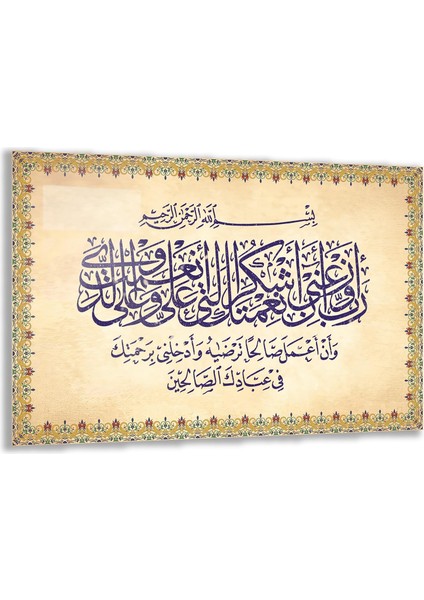 بِسْمِ اللَّهِ الرَّحْمَنِ الرَّحِيمِ
رَبِّ أَوْزِعْنِي أَنْ أَشْكُرَ نِعْمَتَكَ الَّتِي أَنْعَمْتَ عَلَيَّ وَعَلَى وَالِدَيَّ
وَأَنْ أَعْمَلَ صَالِحًا تَرْضَيهُ وَأَدْخِلْنِي بِرَحْمَتِكَ
فِي عِبَادِكَ الصَّالِحِينَ